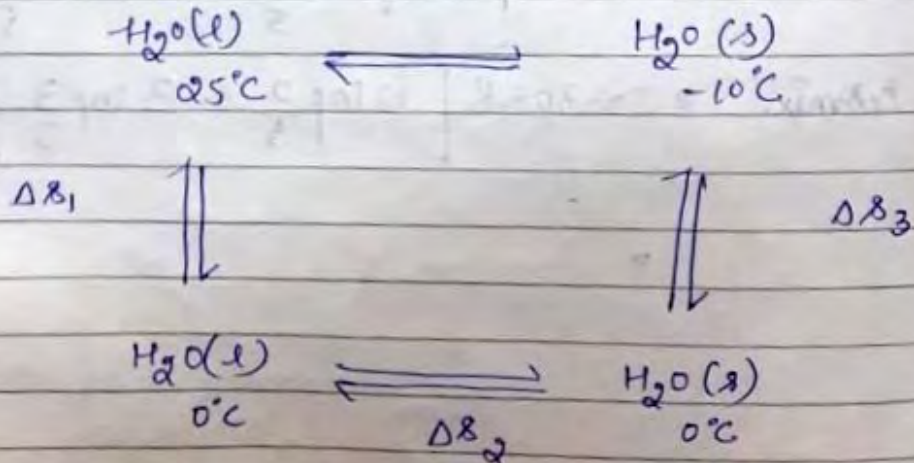 H₂O(l) ⇌ H₂O (s)
25°C -10°C
ΔS₁ ⇌ ⇌ ΔS₃
H₂O(l) ⇌ H₂O (s)
0°C ΔS₂ 0°C